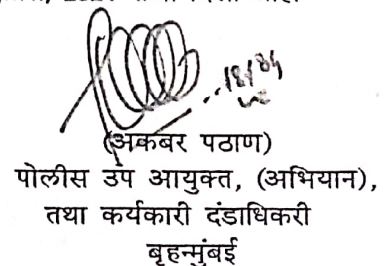 (अकबर पठाण)
पोलीस उप आयुक्त, (अभियान),
तथा कर्यकारी दंडाधिकरी
बृहन्मुंबई